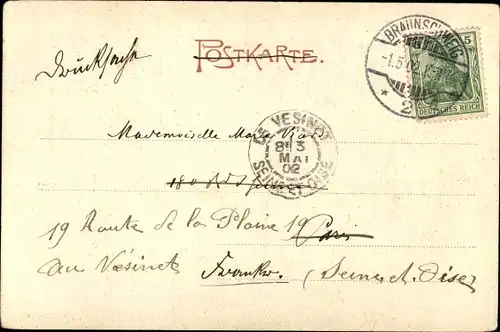 Drucksache
POSTKARTE.
BRAUNSCHWEIG
5
DEUTSCHES REICH
LE VESINET
8 3
MAI
02
SEINE ET OISE
Mademoiselle Marie
19 Route de la Plaine 19 Paris
au Vésinet Frankr. (Seine et Oise)